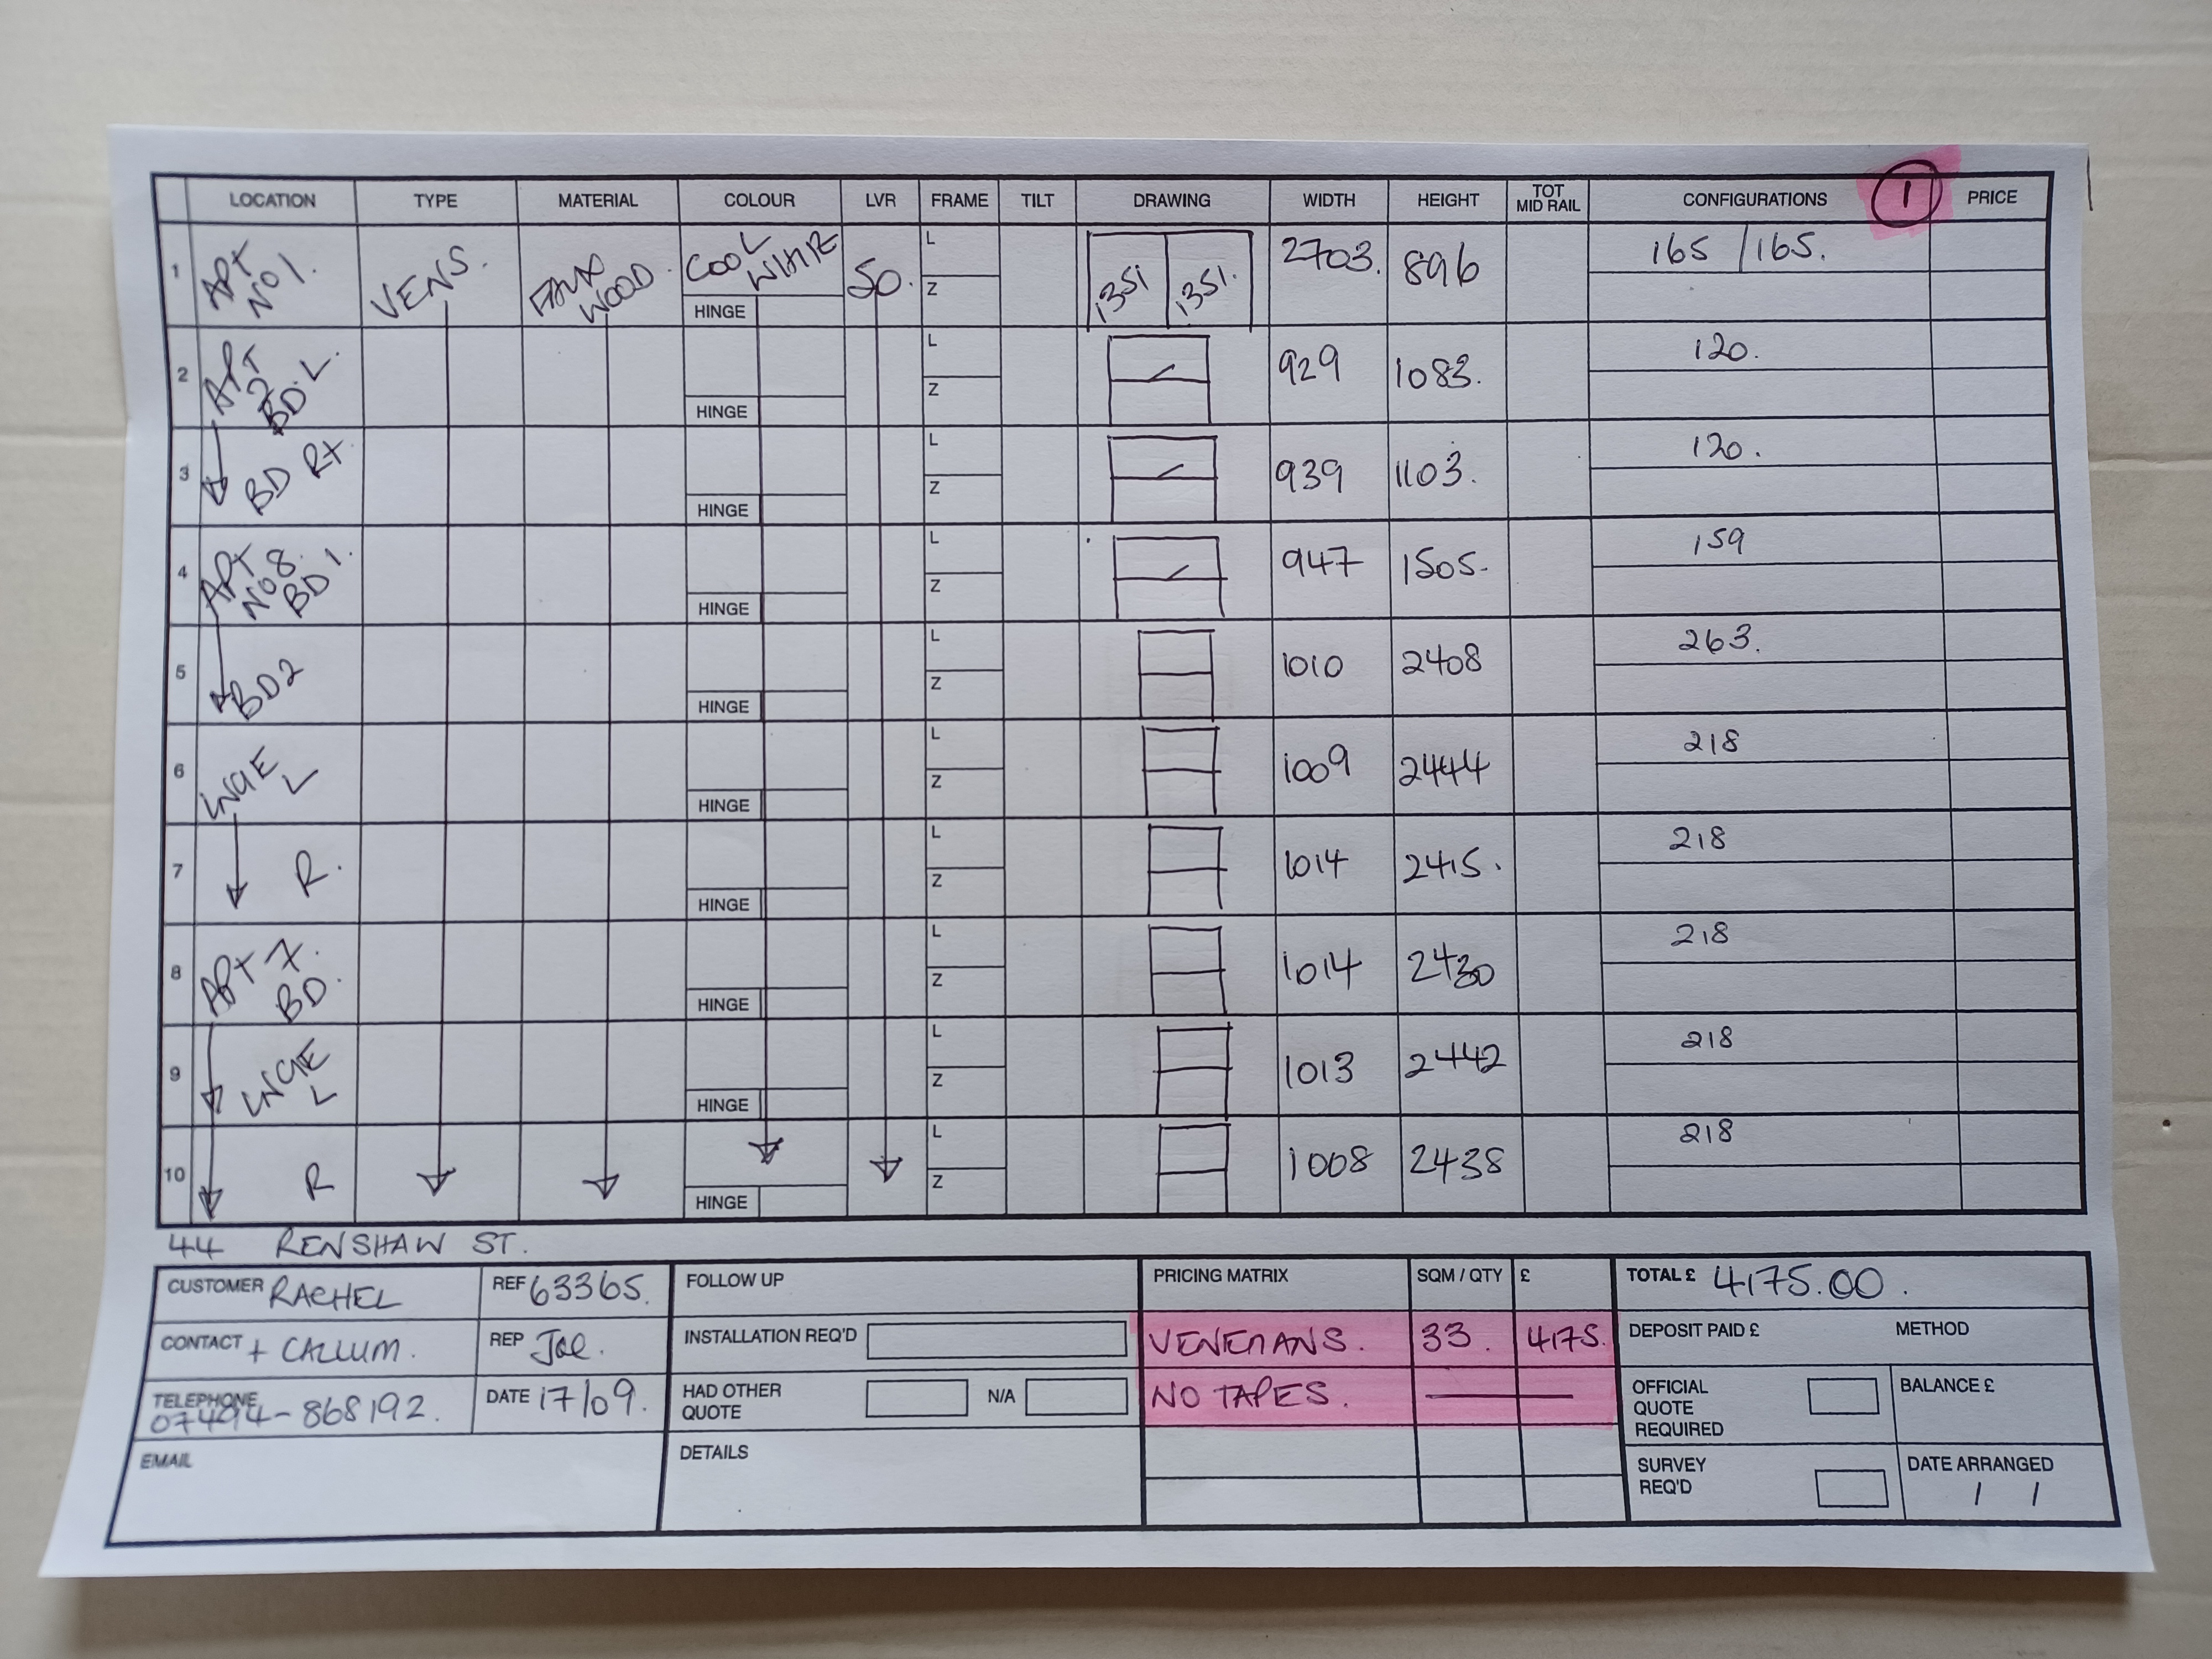 LOCATION TYPE MATERIAL COLOUR LVR FRAME TILT DRAWING WIDTH HEIGHT TOT MID RAIL CONFIGURATIONS 1 PRICE
1 APT No 1. VENS. FAUX WOOD. COOL WHITE HINGE 50. L Z 1351 1351. 2703. 896 165 / 165.
2 APT 2 BD.L. HINGE L Z 929 1083. 120.
3 BD RT. HINGE L Z 939 1103. 120.
4 APT No 8. BD 1. HINGE L Z 947 1505- 159
5 BD2 HINGE L Z 1010 2408 263.
6 LNGE L HINGE L Z 1009 2444 218
7 R. HINGE L Z 1014 2415. 218
8 APT 7. BD. HINGE L Z 1014 2430 218
9 LNGE L HINGE L Z 1013 2442 218
10 R HINGE L Z 1008 2438 218
44 RENSHAW ST.
CUSTOMER RACHEL REF 63365. FOLLOW UP PRICING MATRIX SQM / QTY £ TOTAL £ 4175.00.
CONTACT + CALLUM. REP Joe. INSTALLATION REQ'D VENETIANS. 33 4175. DEPOSIT PAID £ METHOD
TELEPHONE 07494-868192. DATE 17/09. HAD OTHER QUOTE N/A NO TAPES. OFFICIAL QUOTE REQUIRED BALANCE £
EMAIL DETAILS SURVEY REQ'D DATE ARRANGED / /